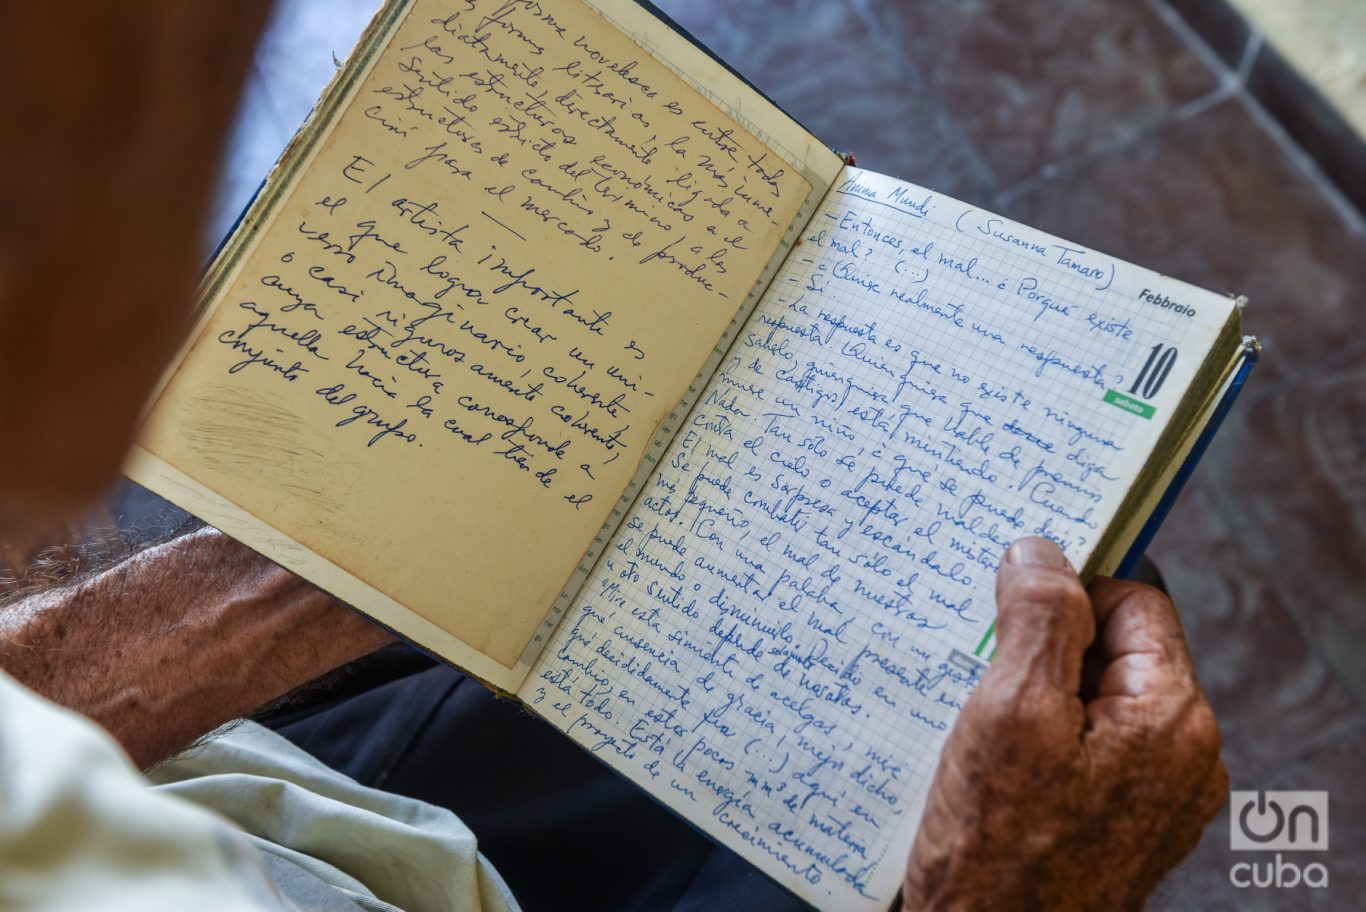 forma novelesca es entre todas
las formas literarias, la más inme-
diatamente, directamente ligada a
las estructuras económicas en el
sentido estricto del término a las
estructuras de cambio y de produc-
ción para el mercado.
El artista importante es
el que logra crear un uni-
verso imaginario, coherente
o casi rigurosamente coherente,
cuya estructura corresponde a
aquella hacia la cual tiende el
conjunto del grupo.
Anima Mundi (Susanna Tamaro)
Febbraio
10
sabato
- Entonces, el mal.... ¿Porqué existe
el mal? (...)
- ¿Quise realmente una respuesta?
- Sí.
- La respuesta es que no existe ninguna
respuesta. (Quien quiera que diga
saberlo, quienquiera que hable de premios
y de castigos, está mintiendo. Cuando
muere un niño, ¿qué se puede decir?
Nada. Tan sólo se puede maldecir
contra el cielo o aceptar el misterio.
El mal es sorpresa y escándalo.
Se puede combatir tan sólo el mal
más pequeño, el mal de nuestros
actos. Con una palabra, con un gesto
se puede aumentar el mal presente en
el mundo o disminuirlo. Decido en uno
u otro sentido depende solamente de nosotros.
"Mire esta simiente de acelgas, mire
qué ausencia de gracia, mejor dicho,
qué decididamente fea (...) aquí en
cambio, en estos pocos mm³ de materia
está todo. Está la energía acumulada
y el proyecto de un crecimiento.
On
cuba